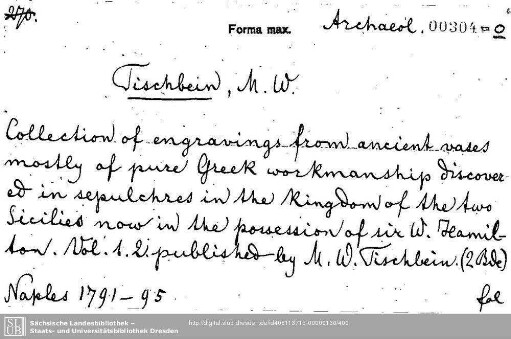 270.
Forma max.
Archaeol. 00304=0
Tischbein, M. W.
Collection of engravings from ancient vases
mostly of pure Greek workmanship discover-
ed in sepulchres in the kingdom of the two
Sicilies now in the possession of sir W. Hamil-
ton. Vol. 1. 2. published by M. W. Tischbein. (2 Bde)
Naples 1791-95
fol
SLUB
Sächsische Landesbibliothek –
Staats- und Universitätsbibliothek Dresden